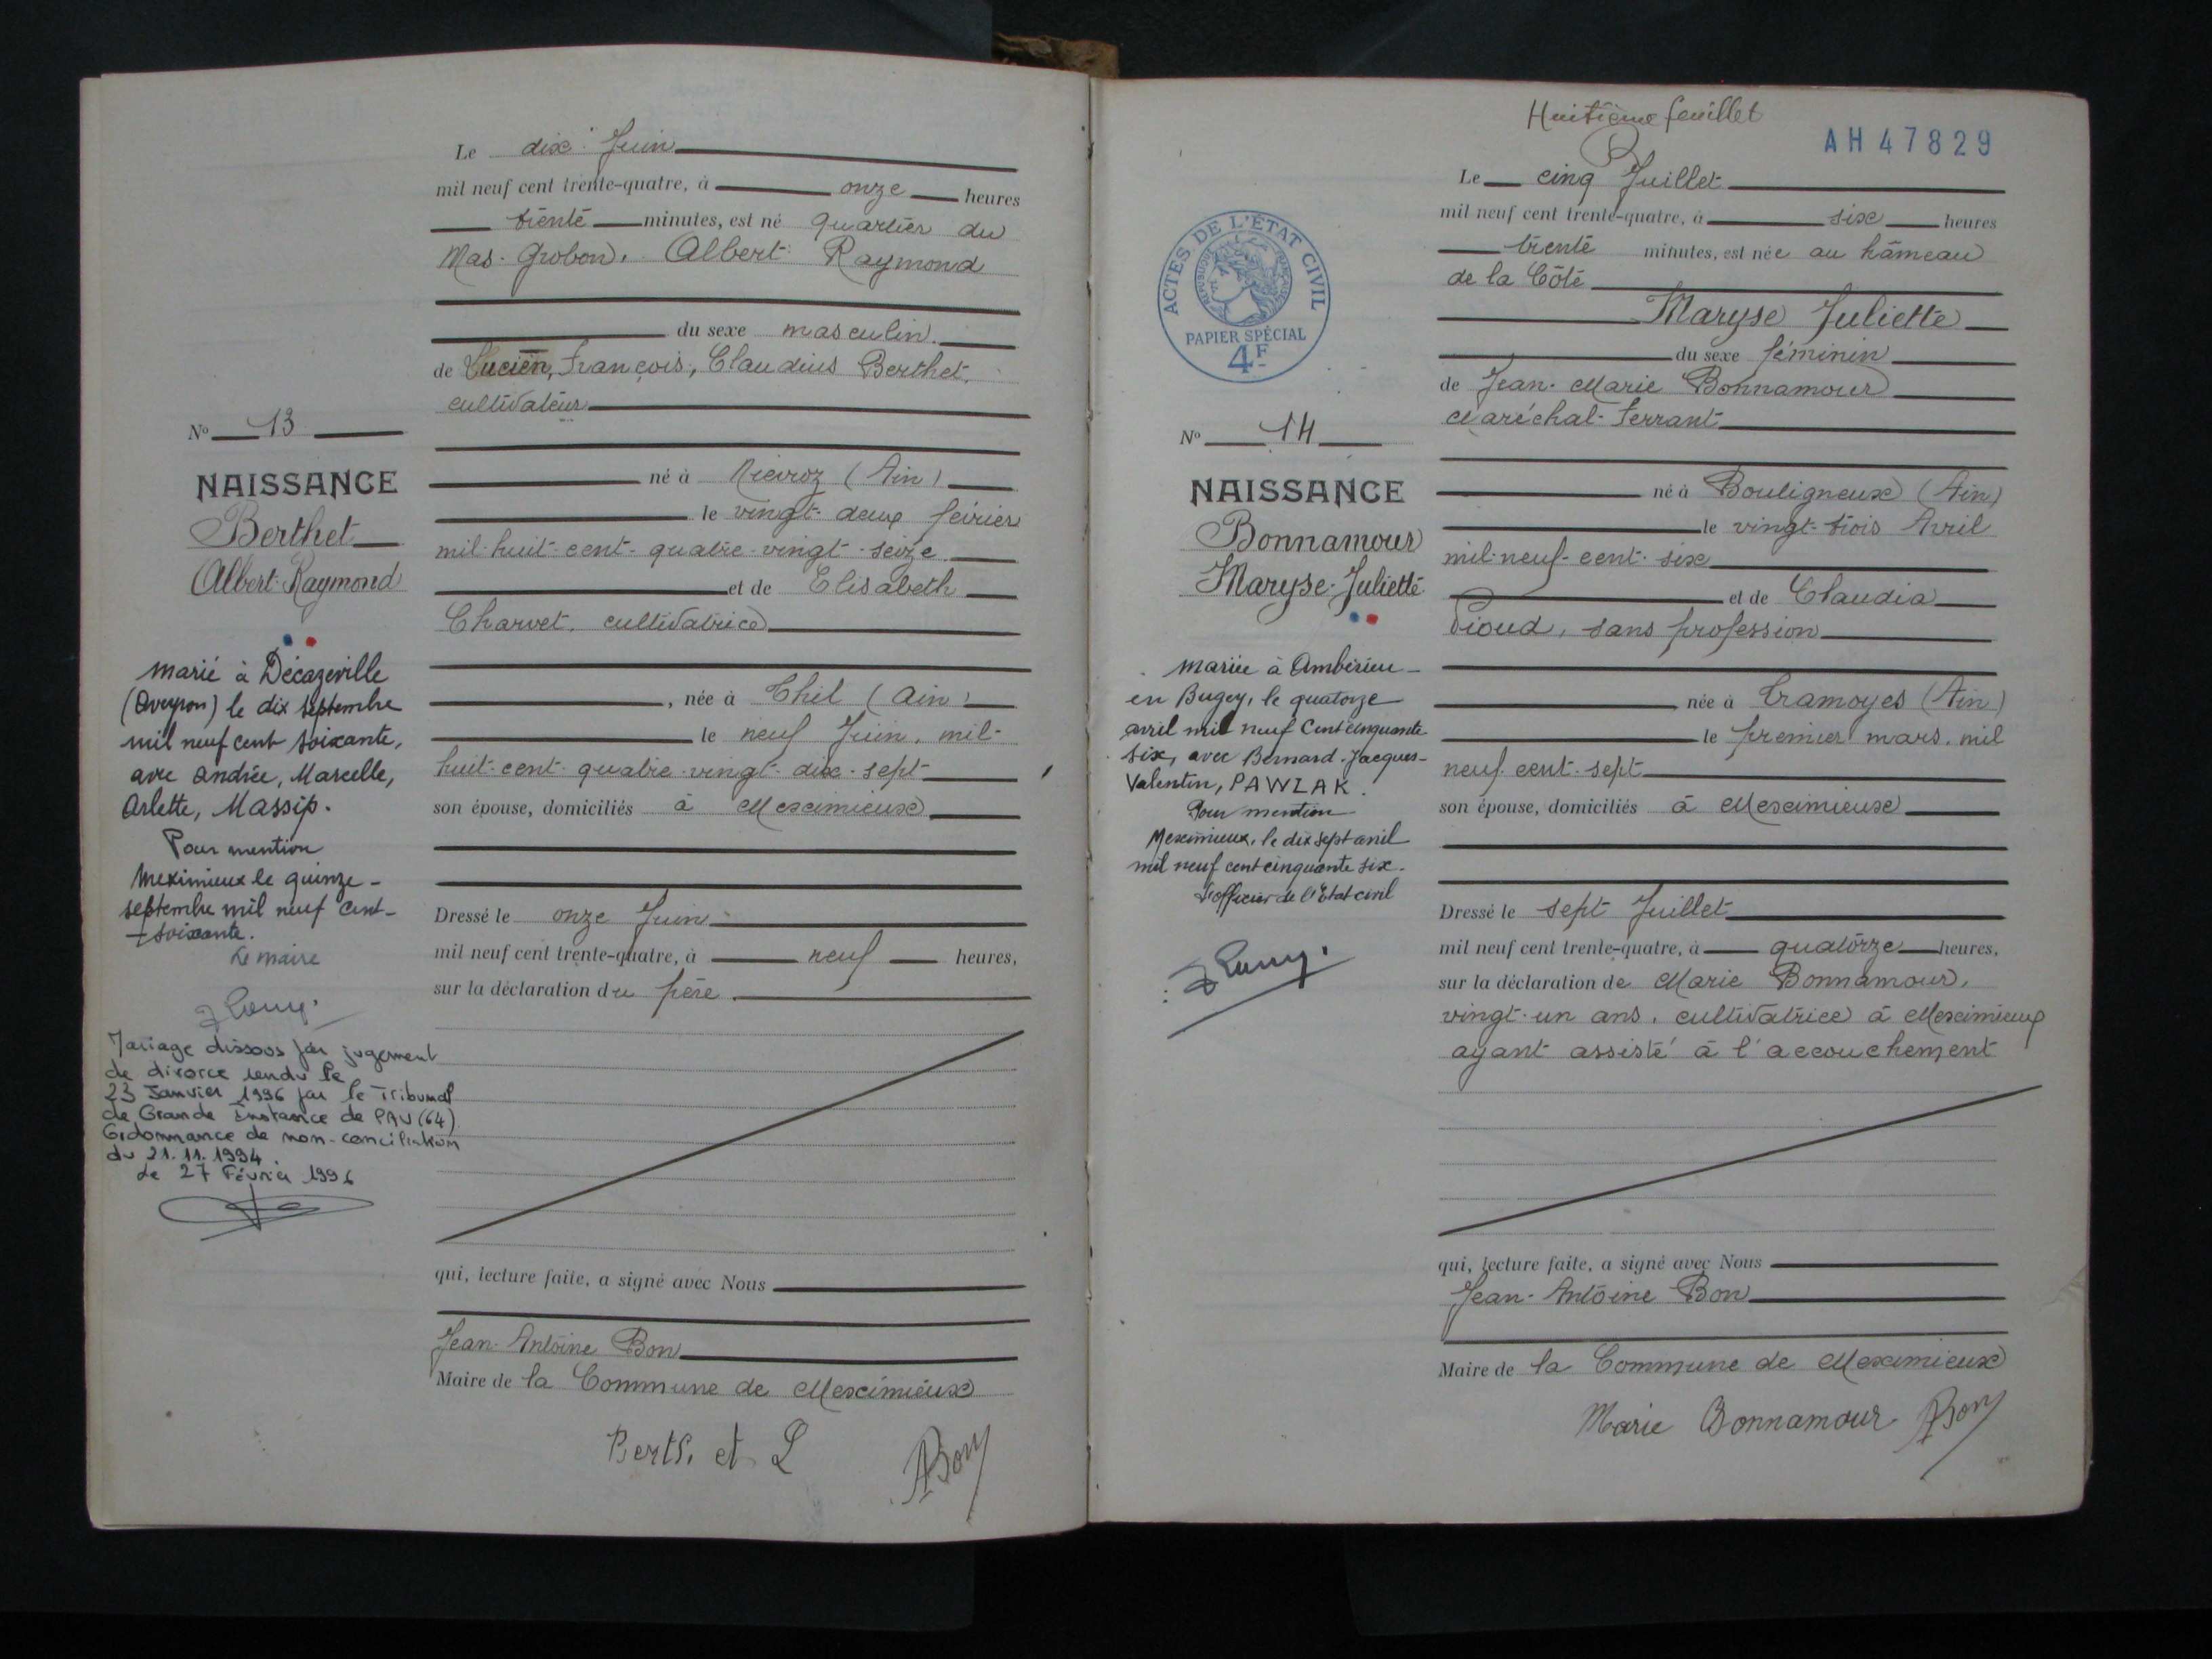 Le dix Juin
mil neuf cent trente-quatre, à onze heures
trente minutes, est né quartier du
Mas-Grobon, Albert Raymond
du sexe masculin
de Lucien, François, Claudius Berthet,
cultivateur
né à Niévroz (Ain)
le vingt-deux février
mil-huit-cent-quatre-vingt-seize
et de Elisabeth
Charvet, cultivatrice
, née à Thil (Ain)
le neuf Juin, mil-
huit-cent-quatre-vingt-dix-sept
son épouse, domiciliés à Meximieux
Dressé le onze Juin
mil neuf cent trente-quatre, à neuf heures,
sur la déclaration du père.
qui, lecture faite, a signé avec Nous
Jean-Antoine Bon
Maire de la Commune de Meximieux
Berth. et L
ABon
No 13
NAISSANCE
Berthet
Albert-Raymond
marié à Décazeville
(Aveyron) le dix septembre
mil neuf cent soixante,
avec Andrée, Marcelle,
Arlette, Massip.
Pour mention
Meximieux le quinze-
septembre mil neuf cent-
soixante.
Le maire
Mariage dissous par jugement
de divorce rendu le
23 Janvier 1996 par le Tribunal
de Grande Instance de PAU (64)
Ordonnance de non-conciliation
du 21.11.1994
Le 27 Février 1996
Huitième feuillet
AH47829
ACTES DE L'ÉTAT CIVIL
RÉPUBLIQUE FRANÇAISE
PAPIER SPÉCIAL
4F
Le cinq Juillet
mil neuf cent trente-quatre, à six heures
trente minutes, est née au hameau
de la Côte
Maryse Juliette
du sexe féminin
de Jean-Marie Bonnamour
Maréchal-Ferrant
né à Bouligneux (Ain)
le vingt-trois Avril
mil-neuf-cent-six
et de Claudia
Pioud, sans profession
née à Tramoyes (Ain)
le premier mars, mil
neuf-cent-sept
son épouse, domiciliés à Meximieux
Dressé le sept Juillet
mil neuf cent trente-quatre, à quatorze heures,
sur la déclaration de Marie Bonnamour,
vingt-un ans, cultivatrice à Meximieux
ayant assisté à l'accouchement
qui, lecture faite, a signé avec Nous
Jean-Antoine Bon
Maire de la Commune de Meximieux
Marie Bonnamour
ABon
No 14
NAISSANCE
Bonnamour
Maryse-Juliette
mariée à Ambérieu-
en Bugey, le quatorze
avril mil neuf Cent cinquante
six, avec Bernard-Jacques-
Valentin, PAWLAK.
Pour mention
Meximieux, le dix sept avril
mil neuf cent cinquante six.
L'officier de l'Etat civil